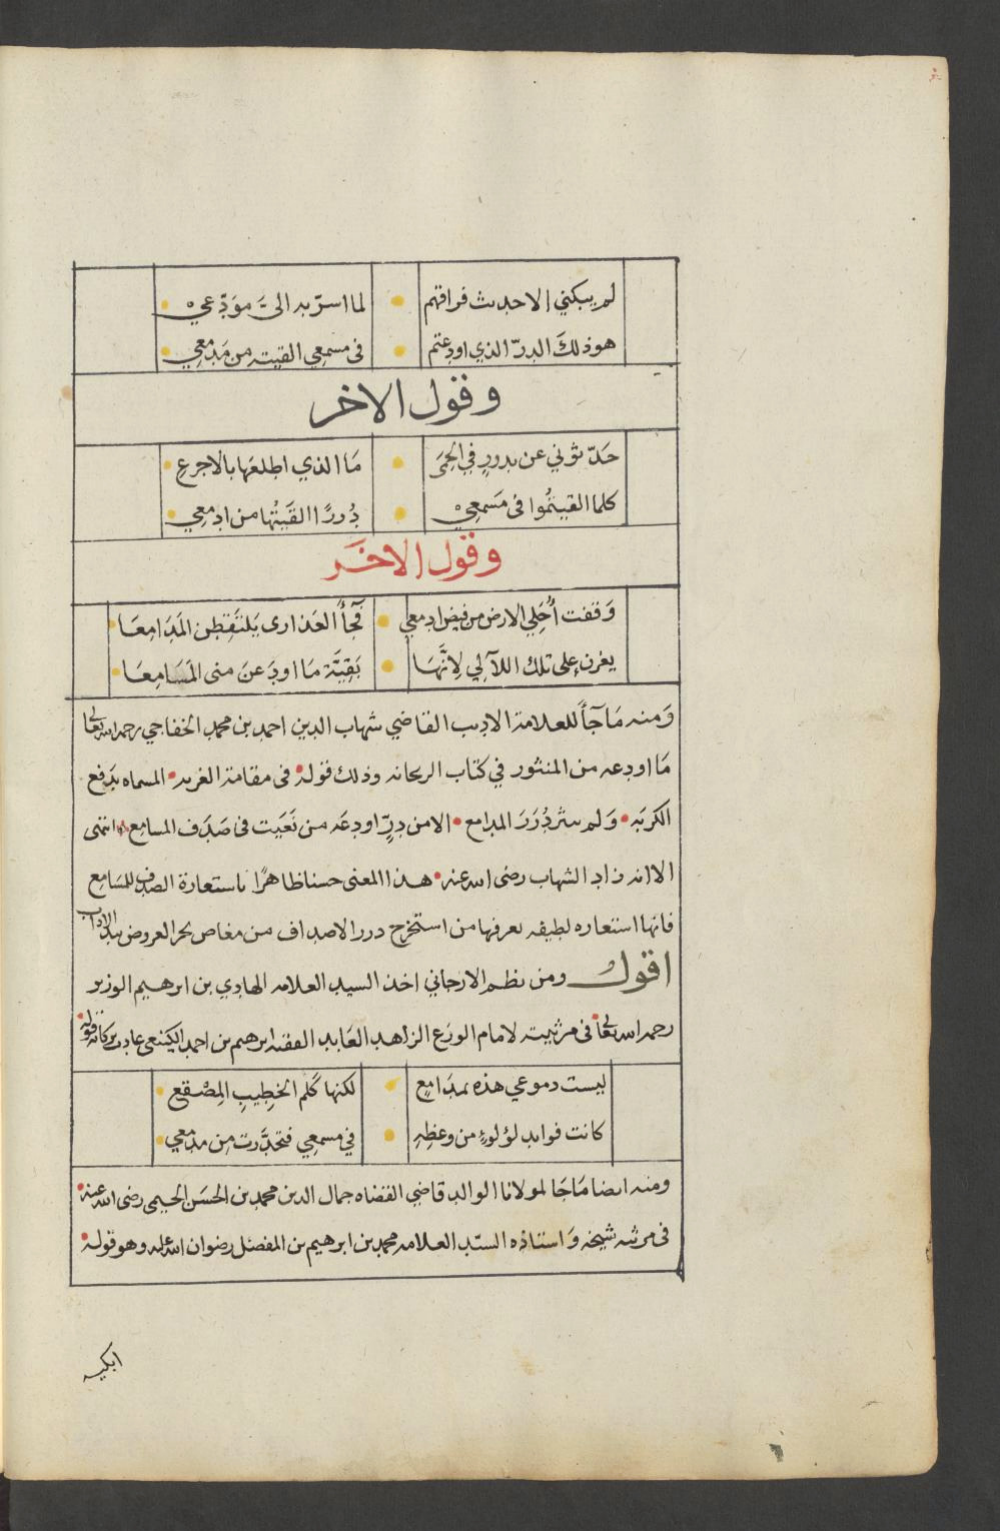 لم يبكني الا حديث فراقهم • لما اسرّ به الىَّ موَدّعي •
هو ذلكَ الدرّ الذي اودعتم • فى مسمعي القيته من مَدمعي •
وقول الاخر
حَدّثوني عن بدورٍ في الحِمَى • مَا الذي اطلعَها بالاجرعِ •
كلما القيتمُوا فى مَسمعِي • دُررًا القَيتُها من ادمعِي •
وقول الاخَر
وَقفت أُحَلِي الارض من فيض ادمعي • فجأَ العَذارى يَلتَقِطِن المَدَامِعَا •
يغرن على تلك اللآلِي لِانَّهَا • بَقِيَّة مَا اودَعنَ منى المَسَامِعَا •
وَمنه مَا جَآ للعلامة الاديب القاضي شهاب الدين احمد بن محمد الخفاجي رحمه الله تعالى
مَا اودعه من المنثور في كتاب الريحانه وذلك قوله • فى مقامة الغربه • المسماه
الكربَه • وَلم ينثر دُرَرَ المدامع • الا من درٍّ اودعَه من نَعَيت فى صَدَف المسامِع انتهى
الا انه زاد الشهاب رضى الله عنه • هذا المعنى حسنا ظاهرًا باستعارة الصدف للمسَامِع
فانها استعاره لطيفه يعرفها من استخرج درر الاصداف من مغاص بحر العروض
اقول ومن نظم الارجاني اخذ السيد العلامه الهادي بن ابرهيم الوزير
رحمه الله تعالى • فى مرثيته لامام الورَع الزاهد العَابد الفقيه ابرهيم بن احمد الكينعي عادت بركاته قوله •
ليست دموعي هذه بمدَامعٍ • لكنها كَلم الخطِيبِ المِصْقعِ •
كانت فوايد لؤلؤءٍ من وعظِهِ • في مسمعِي فتحدَّرت مِن مدمعي •
ومنه ايضا مَا جَا لمولانا الوالد قاضي القضاه جمال الدين محمد بن الحسَن الحيمي رضى الله عنه •
فى مرثيه شيخه وَاستاذه السيّد العلامه محمد بن ابرهيم بن المفضل رضوان الله عليه وهو قوله •
ابكيه